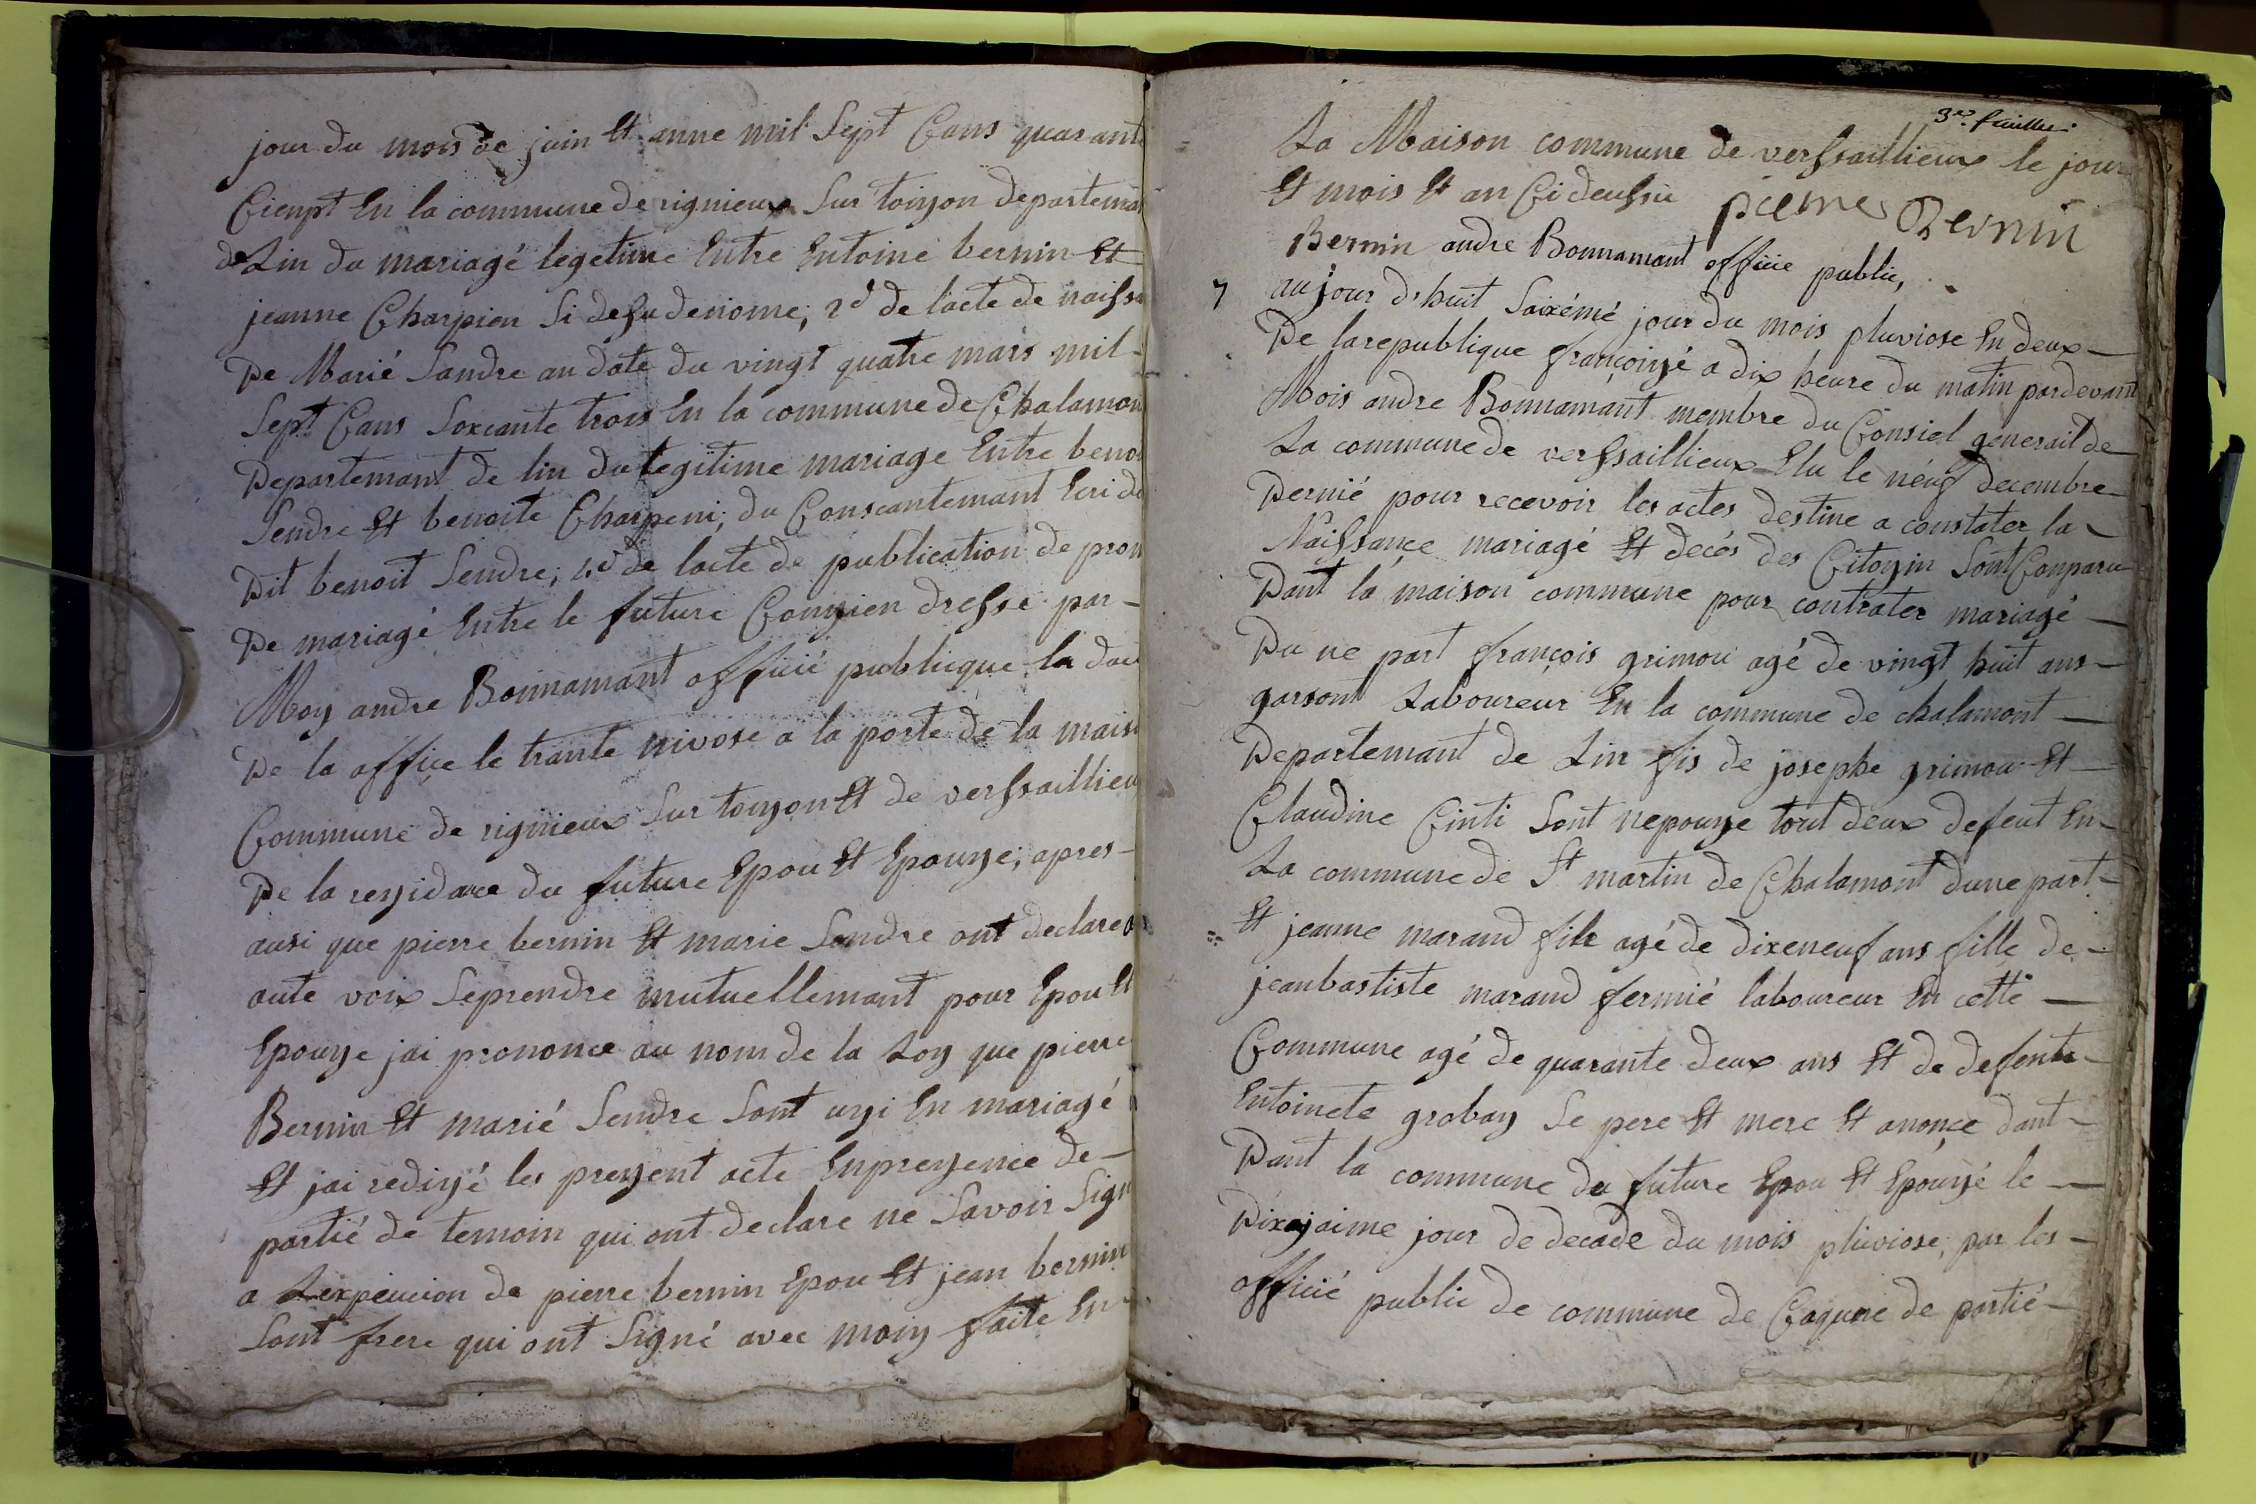 jour du mois de juin Et anne mil Sept Cans quarant
Cienpt En la commune de rignieux Sur toiyon departema
de Lin du mariagé legetime Entre Entoine bernin Et
jeanne Charpien Si desu denome; 2d de lacte de naissa
De Marié Sandre an date du vingt quatre mars mil
Sept Cans Soxcante trois En la commune de Chalamon
Departemant de lin du legitime mariage Entre benoi
Sendre Et benoite Charpeni; du Conscantemant Ecri du
Dit benoit Sendre; 4d de lacte de publication de prom
De mariagé Entre le future Conyien dresse par
Moy andre Bonnamant officié publicque la dou
De la office le trante nivose a la porte de la maiso
Commune de rignieux Sur toiyon Et de versaillieu
De la reyidance du future Epou Et Epouye; apres
ausi que pierre bernin Et marie Sendre ont declare a
aute voix Seprendre mutuellemant pour Epou Et
Epouye jai prononce au nom de la Loy que pierre
Bernin Et marié Sendre Sont uyi En mariagé
Et jai rediyé les preyent acte Enpreyence de
partié de temoin qui ont declare ne Savoir Sign
a Lexpeucion de pierre bernin Epou Et jean bernin
Sont frere qui ont Signé avec moiy faite En
3e feuillet
La Maison commune de versaillieux le jour
Et mois Et an Cideussu pierre Bernin
Bernin andre Bonnamant officie public,
7 aujour dhuit Soixémé jour du mois pluviose En deux
De larepublique françoiyé a dix heure du matin pardevant
Mois andre Bonnamant membre du Consiel generail de
La commune de versaillieux Elu le néuf decembre
Dernié pour recevoir les actes destine a constater la
Naissançe mariagé Et decés des Citoyin Sont Conparu
Dant la maison commune pour contrater mariagé
Du ne part françois grimou agé de vingt huit ans
garsont Laboureur En la commune de chalamont
Departemant de Lin fis de josephe grimou Et
Claudine Cinti Sont nepouye tout deux defeut En
La commune de St martin de Chalamont dune part
Et jeanne marand file agé de dixeneuf ans fille de
jeanbastiste marand fermié laboureur En cette
Commune agé de quarante deux ans Et de defente
Entoinete grobay Se pere Et mere Et anonçe dant
Dant la commune du future Epou Et Epouyé le
Dixajaime jour de decade du mois pluviose; par les
officié public de commune de Caqune de partié